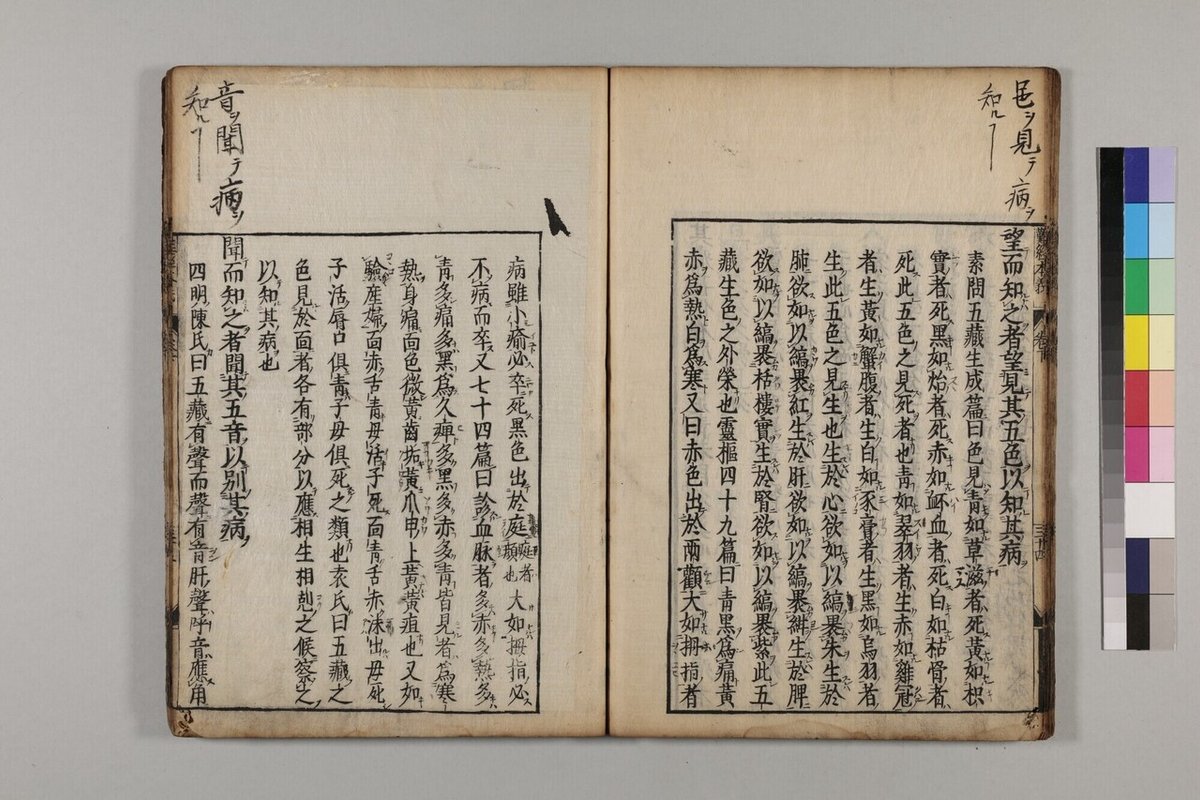 色ヲ見テ病ヲ
知ルヿ
望而知之者望見其五色以知其病
素問五藏生成篇曰色見青如草滋者死黃如枳
實者死黑如炲者死赤如衃血者死白如枯骨者
死此五色之見死者也青如翠羽者生赤如雞冠
者生黃如蟹腹者生白如豕膏者生黑如烏羽者
生此五色之見生也生於心欲如以縞裹朱生於
肺欲如以縞裹紅生於肝欲如以縞裹紺生於脾
欲如以縞裹枯樓實生於腎欲如以縞裹紫此五
藏生色之外榮也靈樞四十九篇曰青黑爲痛黃
赤爲熱白爲寒又曰赤色出於兩顴大如拇指者
病雖小瘉必卒死黑色出於庭庭者顏也大如拇指必
不病而卒又七十四篇曰診血脉者多赤多熱多
青多痛多黑爲久痺多黑多赤多青皆見者爲寒
熱身痛面色微黃齒垢黃爪甲上黃黃疸也又如
驗産婦面赤舌青母活子死面青舌赤沫出母死
子活唇口俱青子母俱死之類也袁氏曰五藏之
色見於面者各有部分以應相生相剋之候察之
以知其病也
音ヲ聞テ病ヲ
知ルヿ
聞而知之者聞其五音以別其病
四明陳氏曰五藏有聲而聲有音肝聲呼音應角